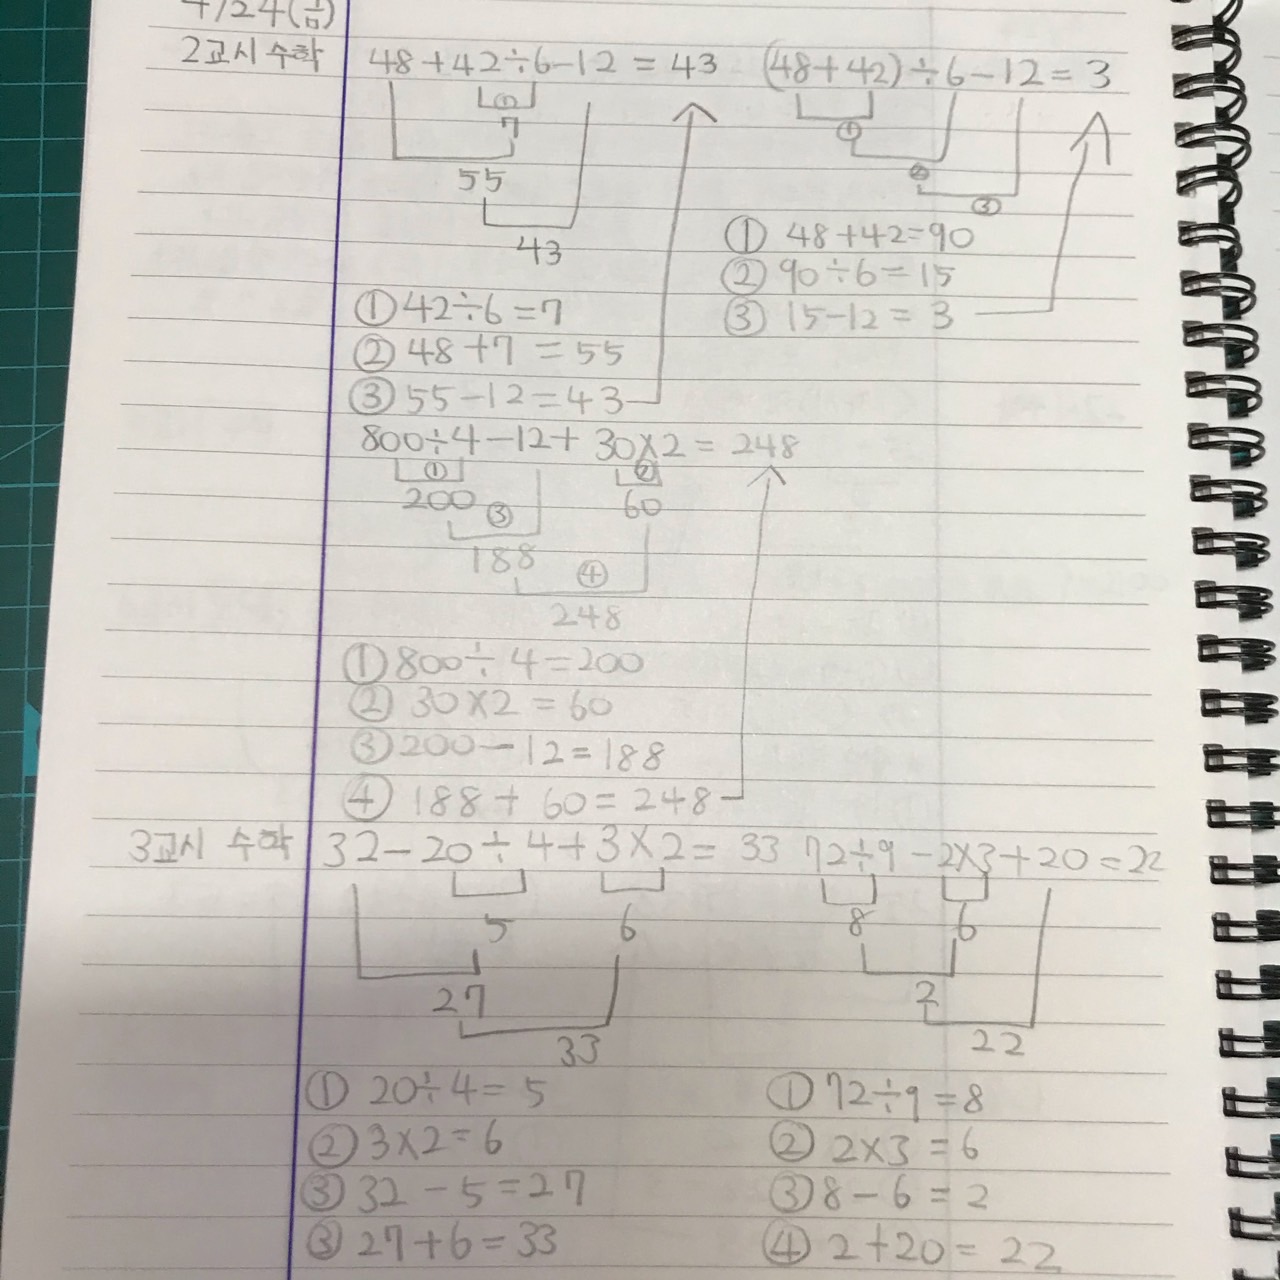 4/24(금)
2교시 수학 48+42÷6-12=43 (48+42)÷6-12=3
① ①
7
② 
55 ③
43
① 48+42=90
② 90÷6=15
③ 15-12=3
① 42÷6=7
② 48+7=55
③ 55-12=43
800÷4-12+30×2=248
① ②
200 ③ 60
188 ④
248
① 800÷4=200
② 30×2=60
③ 200-12=188
④ 188+60=248
3교시 수학 32-20÷4+3×2=33 72÷9-2×3+20=22
5 6 8 6
27 2
33 22
① 20÷4=5 ① 72÷9=8
② 3×2=6 ② 2×3=6
③ 32-5=27 ③ 8-6=2
③ 27+6=33 ④ 2+20=22